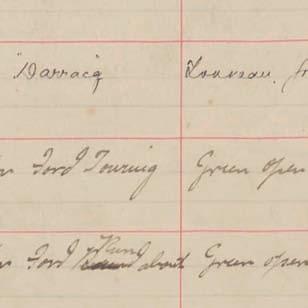 "Darracq
Ford Touring Green open
Ford Run about Green open